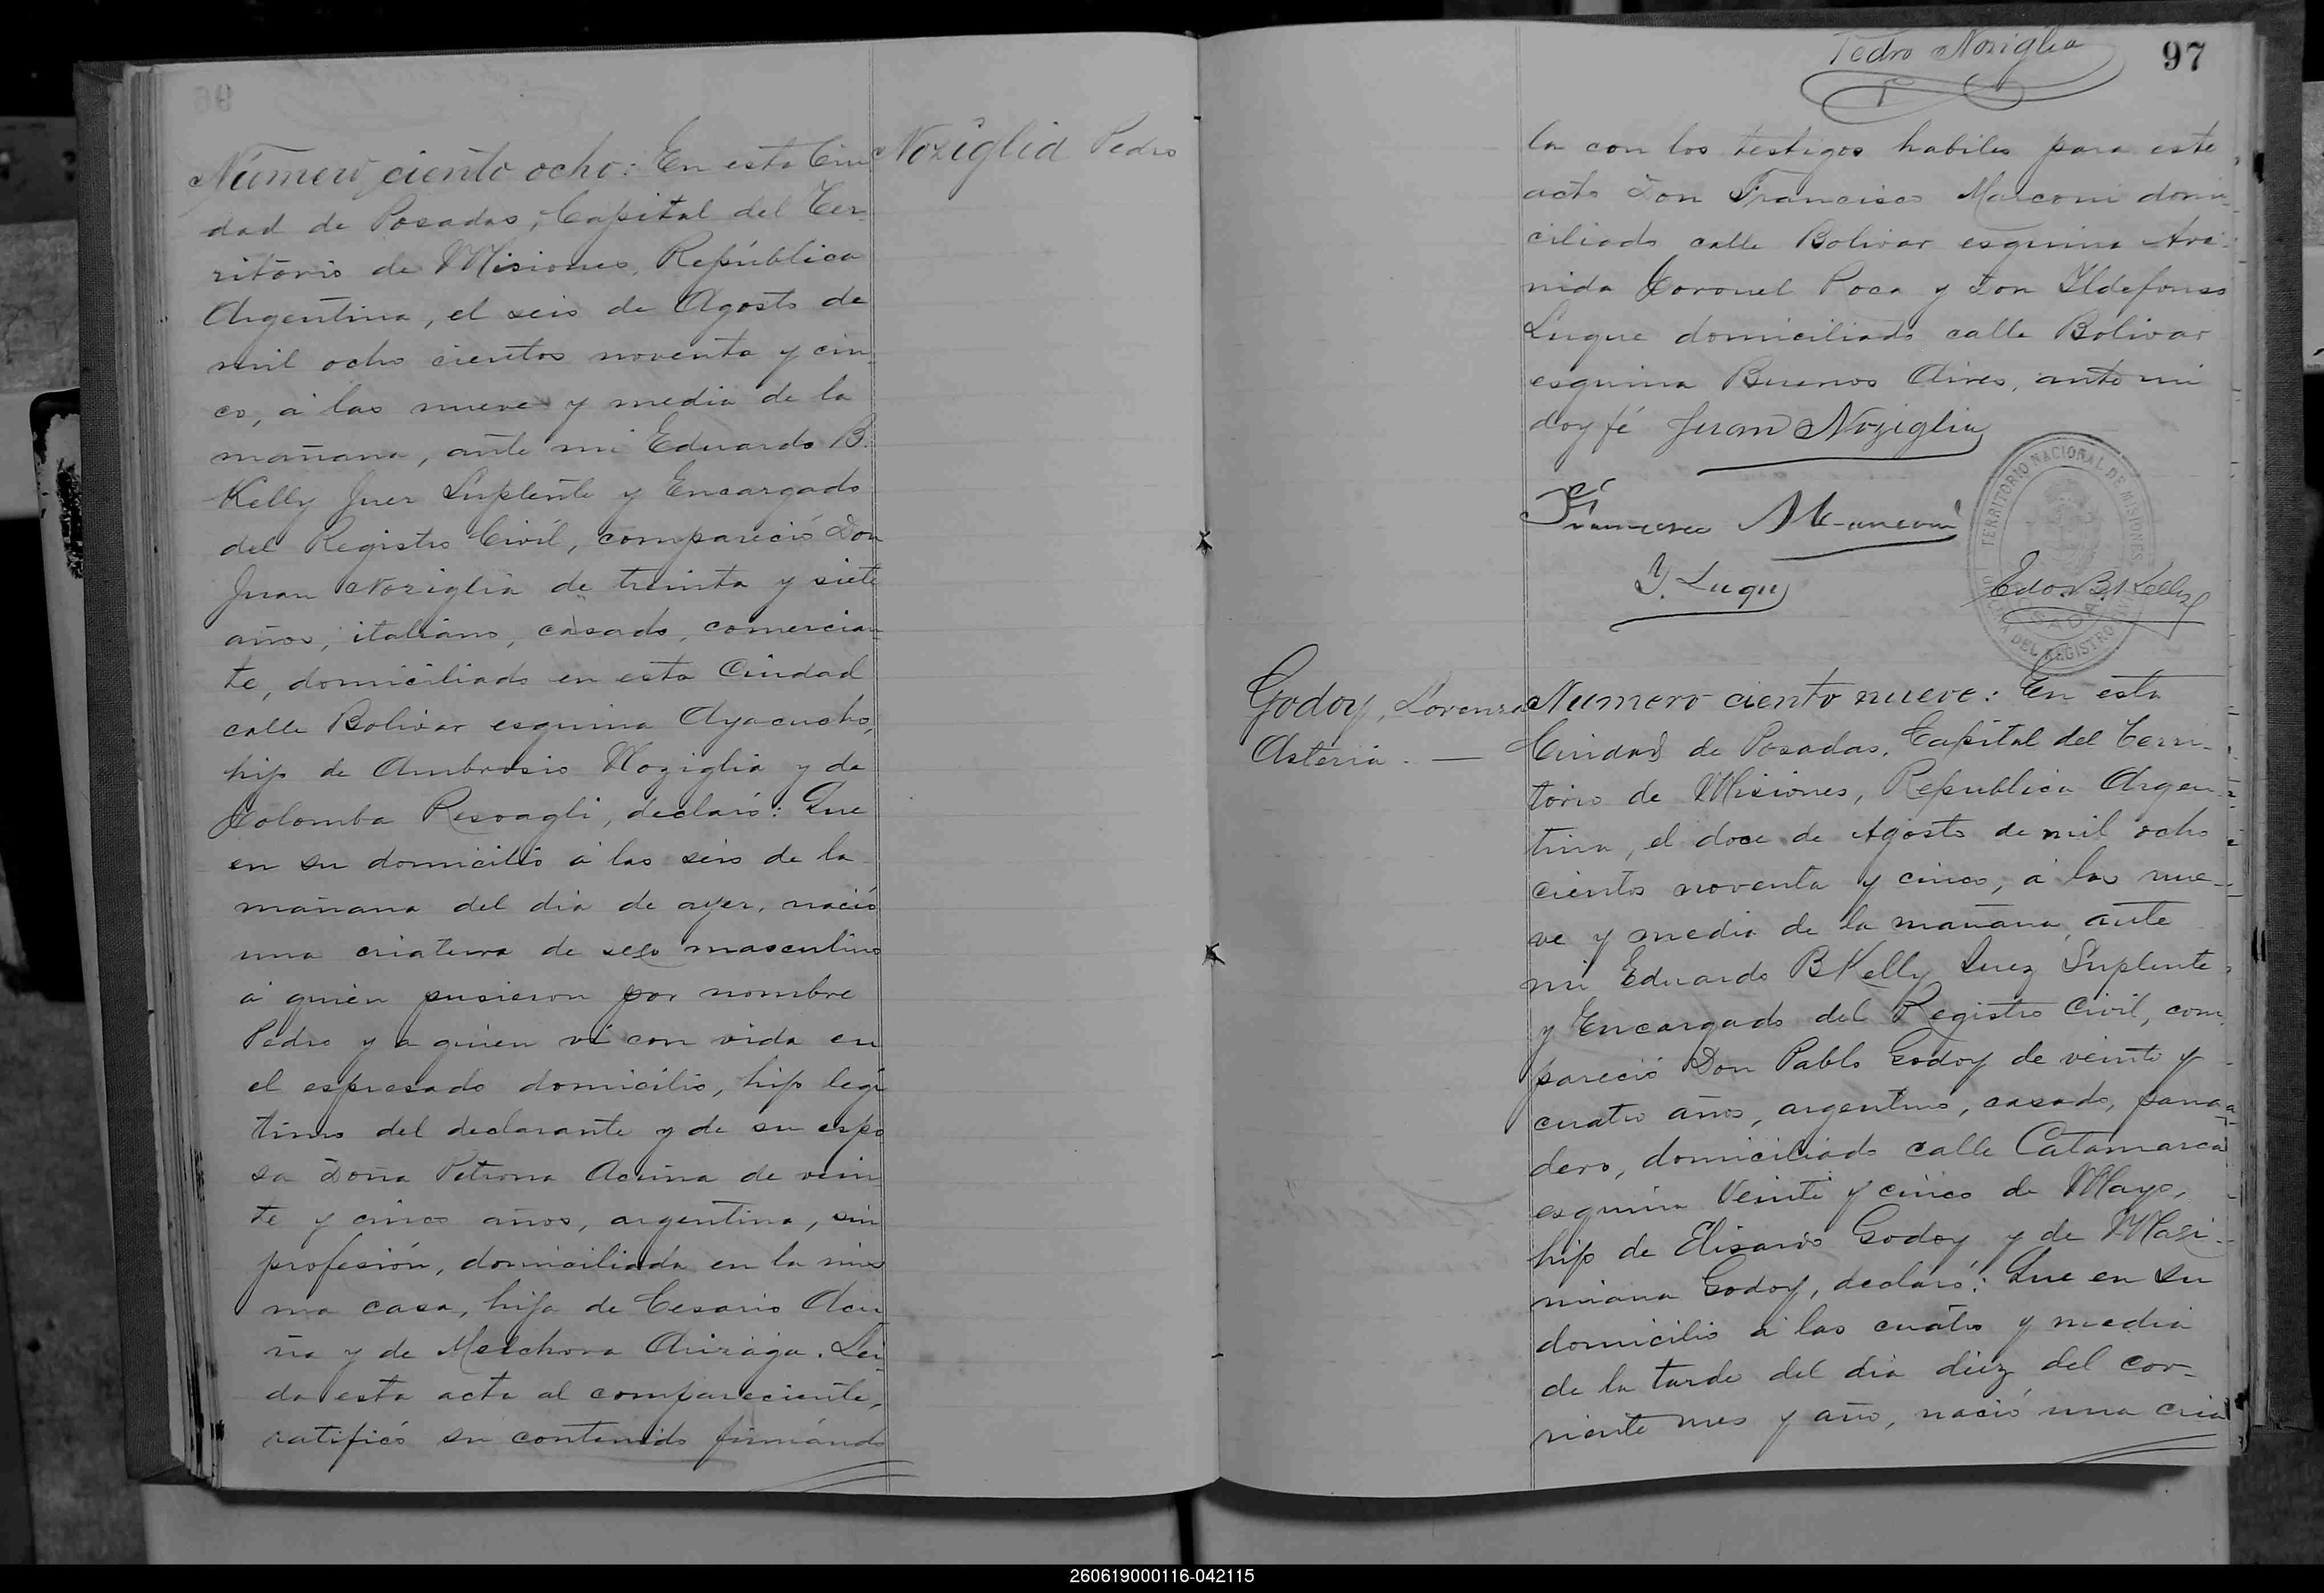 Número ciento ocho: En esta Ciu
dad de Posadas, Capital del Ter-
ritorio de Misiones, República
Argentina, el seis de Agosto de
mil ocho cientos noventa y cin-
co, á las nueve y media de la
mañana, ante mi Eduardo B.
Kelly Juez Suplente y Encargado
del Registro Civil, compareció Don
Juan Noziglia de treinta y siete
años, italiano, casado, comercian-
te, domiciliado en esta Ciudad
calle Bolivar esquina Ayacucho,
hijo de Ambrosio Noziglia y de
Colomba Resoagli, declaró: Que
en su domicilio á las seis de la
mañana del dia de ayer, nació
una criatura de sexo masculino
á quien pusieron por nombre
Pedro y a quien vi con vida en
el espresado domicilio, hijo legi
timo del declarante y de su espo
sa Doña Petrona Acuña de vein
te y cinco años, argentina, sin
profesión, domiciliada en la mis
ma casa, hija de Cesario Acu
ña y de Melchora . Lei-
da esta acta al compareciente,
ratificó su contenido firmando
Noziglia Pedro
Pedro Noziglia
97
la con los testigos habiles para este
acto Don Francisco Marconi domi-
ciliado calle Bolivar esquina Ave-
nida Coronel Roca y Don Ildefonso
Luque domiciliado calle Bolivar
esquina Buenos Aires, ante mi
doy fé Juan Noziglia
Francisco Marconi
Y. Luque
Edo. B. Kelly
TERRITORIO NACIONAL DE MISIONES
DEL REGISTRO
Godoy, Lorenza
Asteria. —
Numero ciento nueve: En esta
Ciudad de Posadas, Capital del Terri-
torio de Misiones, Republica Argen-
tina, el doce de Agosto de mil ocho
cientos noventa y cinco, á las nue-
ve y media de la mañana, ante
mi Eduardo B Kelly Juez Suplente
y Encargado del Registro Civil, com-
pareció Don Pablo Godoy de veinte y
cuatro años, argentino, casado, pana-
dero, domiciliado calle Catamarca
esquina Veinte y cinco de Mayo,
hijo de Elisardo Godoy y de Maxi-
miana Godoy, declaró: Que en su
domicilio á las cuatro y media
de la tarde del dia diez del cor-
riente mes y año, nació una cria
260619000116-042115